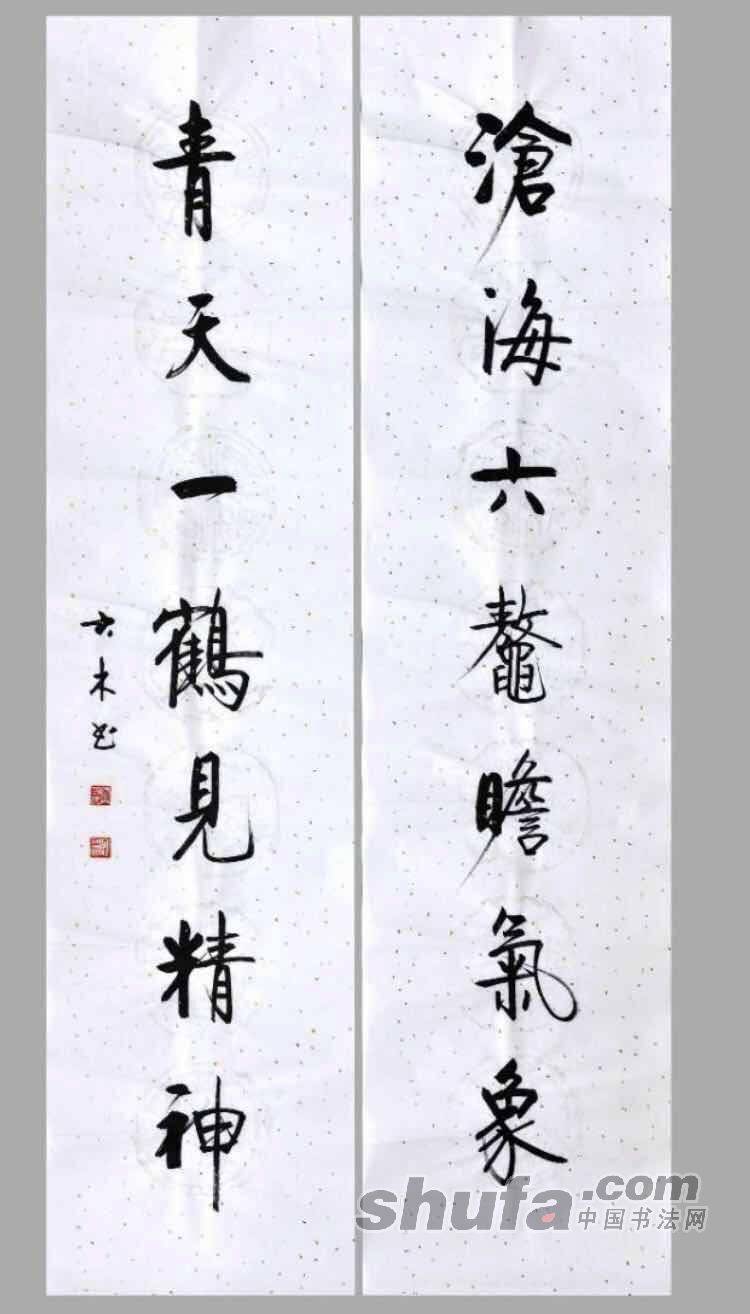 滄海六鼇瞻氣象
青天一鶴見精神
shufa.com
中国书法网